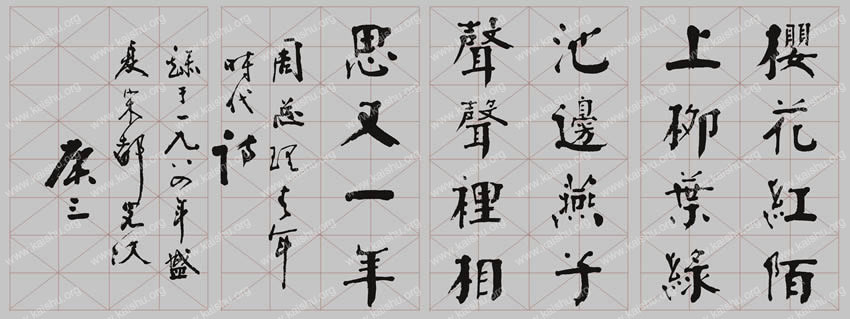 櫻花紅陌
上柳葉綠
池邊燕子
聲聲裡相
思又一年
周总理青年
時代詩
録于一九八四年盛
夏宋都
三
www.kaishu.org